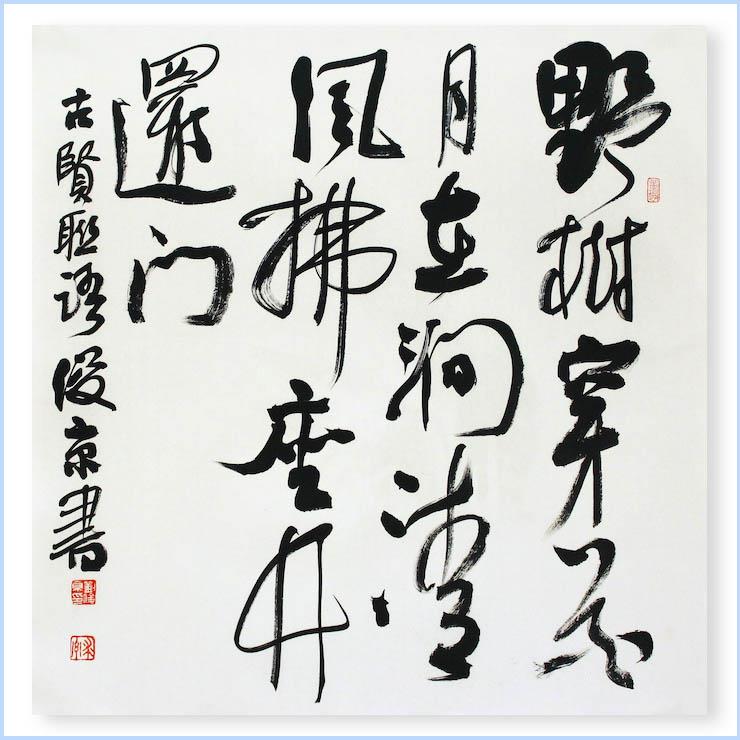 野樹穿花
月在澗清
風拂座竹
還门
古賢聯語俊京書